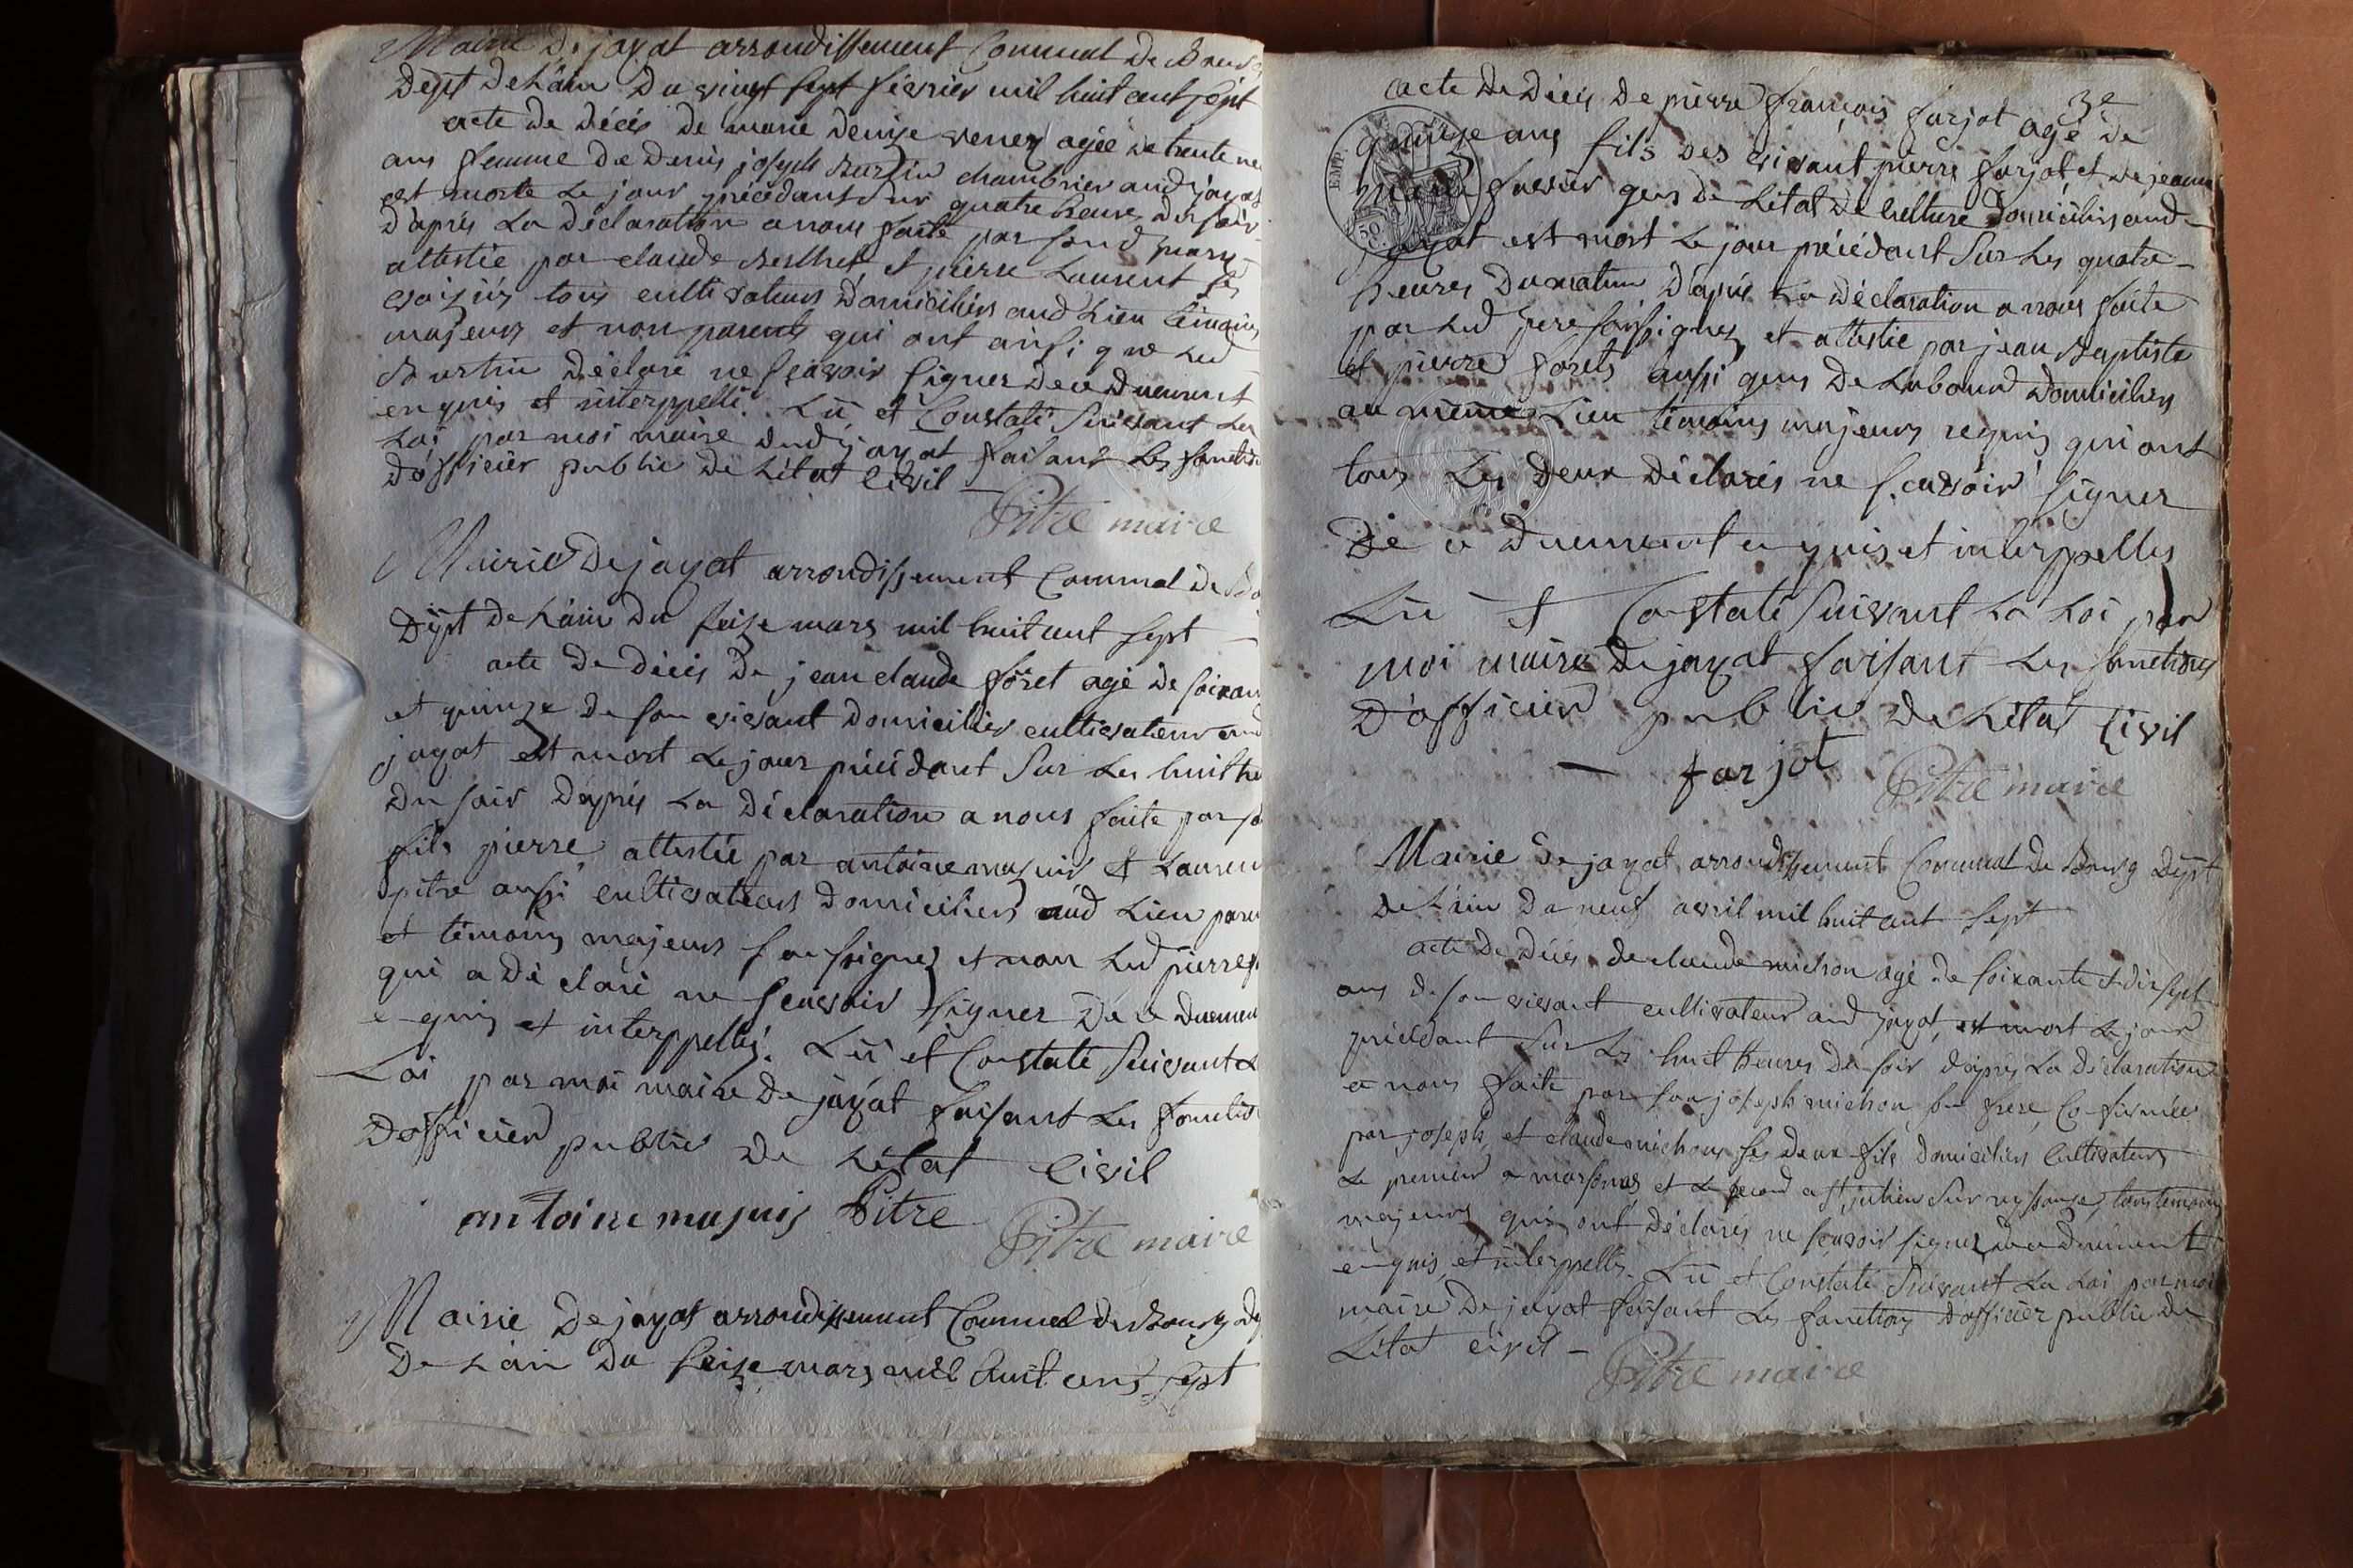 Mairie De jayat arrondissement Communal De Bourg
Dépt De L'ain Du vingt sept février mil huit cent sept
acte De Décés De marie Denize venez agée De trente ne
ans femme De Denis joseph Burtin chambrier aud jayat
est morte Le jour précédant sur quatre heures du soir
D'aprés La Déclaration a nous faite par son d mary
attestée par claude Berthet et pierre Laurent ses
voisins tous cultivateurs Domiciliés aud Lieu témoins
majeurs et non parents qui ont ainsi que Led
Burtin Déclaré ne scavoir signer De ce Duement
enquis et interppellé. Lû et Constaté suivant La
Loi par moi maire dud jayat faisant Les fonctio
D'officier public De L'état Civil —
Pitre maire
Mairie De jayat arrondissement Communal De Bo
Dépt De L'ain Du seize mars mil huit cent sept —
acte De Décés De jean claude foret agé De soixan
et quinze De son vivant Domicilier cultivateur aud
jayat est mort Le jour précédant sur Les huit he
Du soir D'aprés La Déclaration a nous faite par so
fils pierre attestée par antoine mujuis et Lauren
pitre aussi cultivateurs Domiciliers aud Lieu paren
et témoins majeurs sousignez et non Led pierre
qui a Déclaré ne scavoir signer De ce Duemen
enquis et interppellé. Lû et Constaté suivant L
Loi par moi maire De jayat faisant Les fonctio
D'officier public De L'état Civil
antoine mujuis Pitre
Pitre maire
Mairie De jayat arrondissement Communal De Bourg Dé
De L'ain Du seize mars mil huit cent sept
3e
acte De Décés De pierre françois farjot agé de
quinze ans fils Des vivant pierre farjot et De jeanne
marie favier gens De L'etat De culture Domiciliés aud
EMP.
50 C.
jayat est mort Le jour précédant sur Les quatre
heures Du matin D'aprés La Déclaration a nous faite
par Led pere soussignez et attestée par jean Baptiste
et pierre forets aussi gens De Labour Domiciliers
au même Lieu témoins majeurs requis qui ont
tous Les Deux Déclarés ne scavoir signer
De ce Duement enquis et interppellés
Lû et Constaté suivant La Loi par
moi maire De jayat faisant Les fonctions
D'officier public De L'état Civil
— farjot Pitre maire
Mairie De jayat arrondissement Communal De Bourg Dépt
De L'ain Du neuf avril mil huit cent sept
acte De Décés De claude michon agé De soixante et dix sept
ans De son vivant cultivateur aud jayat, est mort Le jour
précédant sur Les huit heures Du soir D'aprés La Déclaration
a nous faite par joseph michon son frere, Confirmée
par joseph et claude michon ses deux fils Domiciliers Cultivateurs
Le premier a marsonas et Le second a St julien sur reyssouze, tous témoins
majeurs qui ont Déclarés ne scavoir signer De ce Duement
enquis et interppellés. Lû et Constaté suivant La Loi par moi
maire De jayat faisant Les fonctions D'officier public De
L'état civil —
Pitre maire